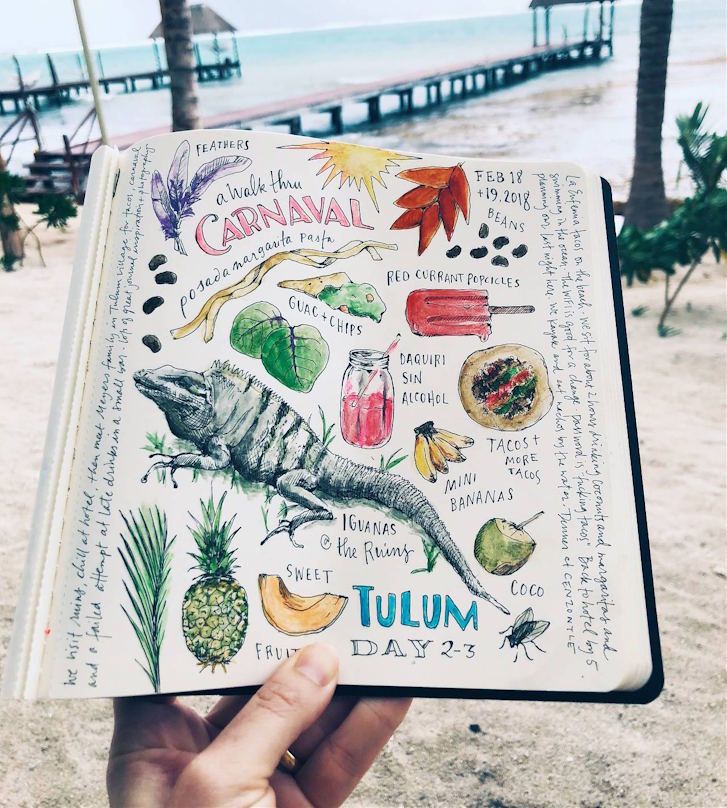 FEATHERS
a Walk thru
CARNAVAL
FEB 18
+19, 2018
BEANS
posada margarita pasta
GUAC + CHIPS
RED CURRANT POPCICLES
DAQUIRI
SIN
ALCOHOL
TACOS +
MORE
TACOS
MINI
BANANAS
IGUANAS
@ the Ruins
SWEET
FRUIT
COCO
TULUM
DAY 2-3
we visit ruins, chill at hotel, then meet Meyers family in Tulum village for tacos, carnaval
and a failed attempt at late drinks in a small bar. lots of great journal inspiration + photography
La Eufemia tacos on the beach. we sit for about 2 hours drinking coconuts and margaritas and
swimming in the ocean. The wifi is good for a change. password is "fucking tacos" Back to hotel by 5
planning our last night here. We kayak and eat nachos by the water. Dinner at CENZONTLE